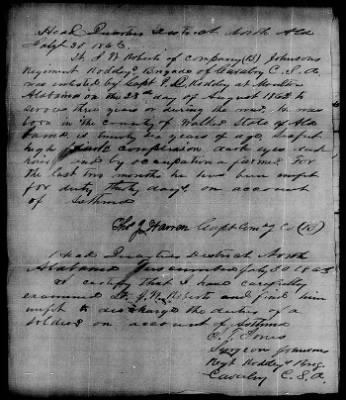 Head Quarters District North Ala
July 30 1863
Roberts of company (B) Johnsons
Regiment Roddeys Brigade of Cavalry C. S. A.
was enlisted by Capt P. D. Roddey at Moulton
Alabama on the day of August 1862 to
service three years or during the war, he was
born in the county of Walker State of Ala
bama, is twenty six years of age,
high complexion dark eyes dark
hair and by occupation a farmer. For
the last two months he has been unfit
for duty thirty days on account
of Asthma
Capt Comg Co (B)
Head Quarters District North
Alabama July 30 1863
I certify that I have carefully
examined Roberts and find him
unfit to discharge the duties of a
soldier on account of Asthma
Surgeon
Regt Roddeys Brig.
Cavalry C. S. A.